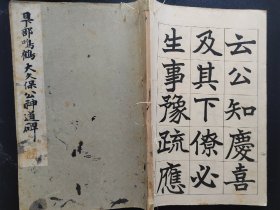 日下部鳴鶴 大久保公神道碑
云公知慶喜
及其下僚必
生事豫疏應